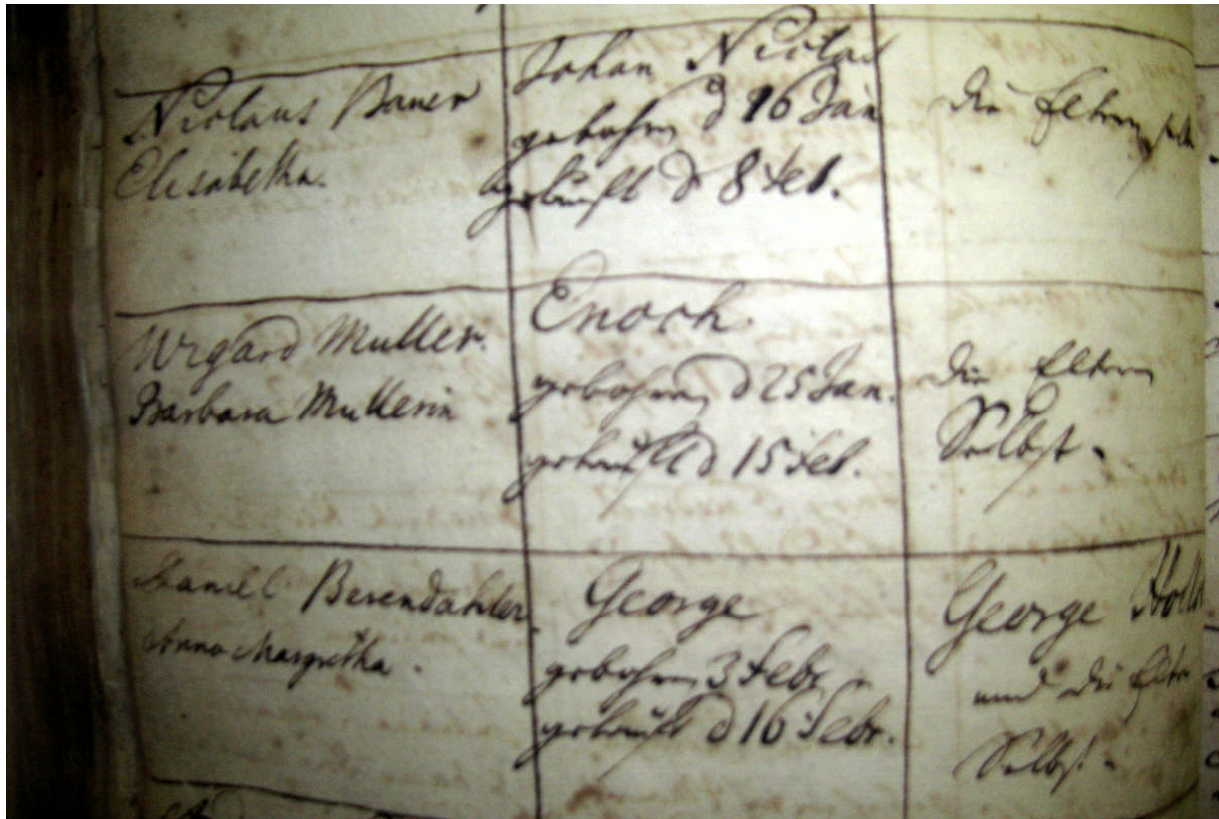 Nicolaus Bauer
Elisabetha.
Johan Nicolas
gebohren d 16 Jan
getauft d 8 Feb.
die Eltern
Wigard Muller.
Barbara Mullerin
Enoch
gebohren d 25 Jan.
getauft d 15 Feb.
die Eltern
Selbst.
Daniel Besendahler
Anna Margretha.
George
gebohren 3 Febr.
getauft d 16 Febr.
George
und die Eltern
Selbst.